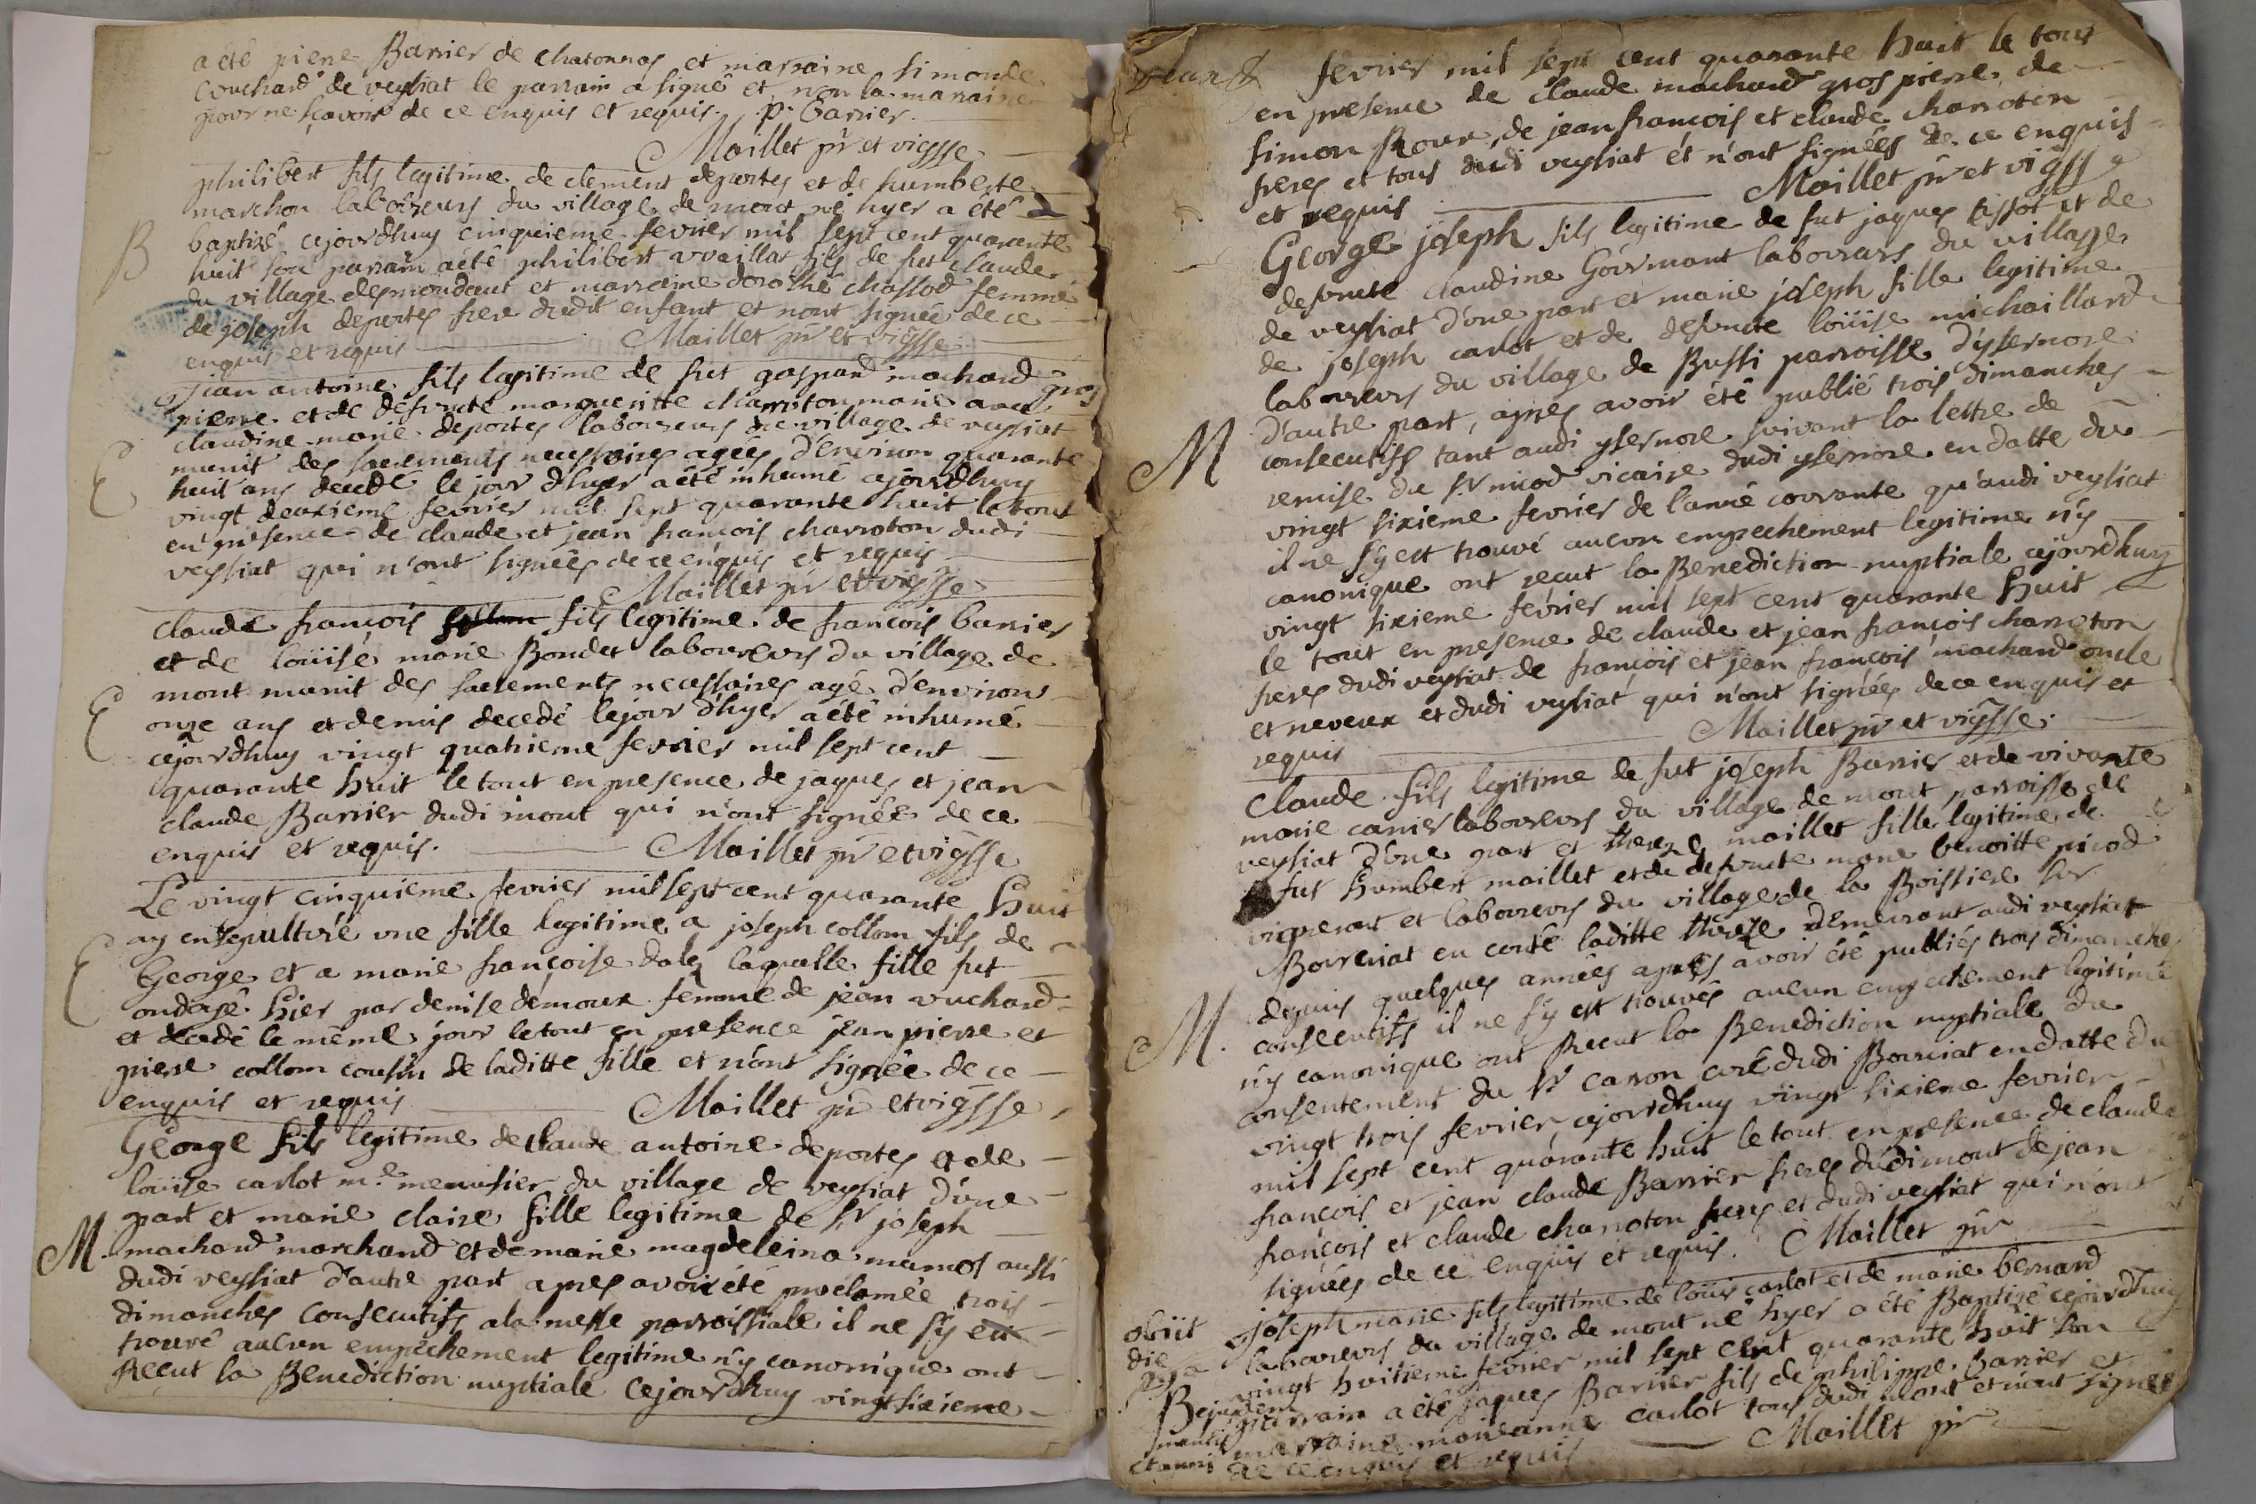 a été piere Barrier de chatonnas et marraine simonde
couchard de veysiat le parrain a signé et non la marraine
pour ne sçavoir de ce enquis et requis. p. barrier.
Maillet pr et vigsse
philibert fils legitime de clement deportes et de humberte
marchon laboureurs du village de mont né hyer a été
B
baptizé cejourdhuy cinquieme fevrier mil sept cent quarante
huit son parrain a été philibert vvaillat fils de fut claude
du village desmondaut et marraine dorothé chassod femme
de joseph deportes frere dudit enfant et nont signée de ce
enquis et requis Maillet pr et vigsse
Jean antoine fils legitime de fut gaspard machard gros
pierre et de defunte marguerite charroton marié avec
claudine marie deportes laboureurs du village de veysiat
E
munit des sacrements necessaires agéés d'environ quarante
huit ans decedé le jour d'hyer a été inhumé cejourdhuy
vingt deuxieme fevrier mil sept quarante huit le tout
en presence de claude et jean françois charroton dudi
veysiat qui n'ont signées de ce enquis et requis
Maillet pr et vigsse
claude françois fils legitime de françois barrier
et de loüise marie Bondet laboureurs du village de
E
mont munit des sacrements necessaires agé d'environ
onze ans et demis decedé le jour d'hyer a été inhumé
cejourdhuy vingt quatrieme fevrier mil sept cent
quarante huit le tout en presence de jaques et jean
claude Barrier dudi mont qui n'ont signéés de ce
enquis et requis. Maillet pr et vigsse
Le vingt cinquieme fevrier mil sept cent quarante huit
E
ay ensepulturé une fille legitime a joseph collom fils de
George et a marie françoise dalez laquelle fille fut
ondoyé hier par denise démoux femme de jean vuchard
et decedé le même jour le tout en presence jean pierre et
piere collom cousin de laditte fille et n'ont signéé de ce
enquis et requis Maillet pr et vigsse
George fils legitime de claude antoine deportes et de
loüise carlot me menusier du village de veysiat d'une
part et marie claire fille legitime de sr joseph
M.
machard marchand et de marie magdeleina mamos aussi
dudi veysiat d'autre part apres avoir été proclamée trois
dimanches consecutifs a la messe parroissiale il ne s'y est
trouvé aucun empechement legitime n'y canonique ont
Reçut la Benediction nuptiale cejourdhuy vingt sixieme
fevrier mil sept cent quarante huit le tout
en presence de claude machard gros pierre de
simon Roux, de jean françois et claude charroton
freres et tous dudi veysiat et n'ont signéés de ce enquis
et requis Maillet pr et vigsse
George joseph fils legitime de fut jaques tissot et de
defunte claudine Gourmant laboureurs du village
de veysiat d'une part et marie joseph fille legitime
de joseph carlot et de defunte loüise michaillard
laboureurs du village de Bussi parroisse d'ysernore
M
d'autre part, apres avoir été publié trois dimanches
consecutifs tant audi ysernore suivant la lettre de
remise du sr nicod vicaire dudi ysernore en datte du
vingt sixieme fevrier de l'année courante qu'audi veysiat
il ne s'y est trouvé aucun empechement legitime n'y
canonique ont recut la Benediction nuptiale cejourdhuy
vingt sixieme fevrier mil sept cent quarante huit
le tout en presence de claude et jean françois charroton
freres dudi veysiat de françois et jean françois machard oncle
et neveux et dudi veysiat qui n'ont signéés de ce enquis et
requis Maillet pr et vigsse.
Claude fils legitime de fut joseph Barrier et de vivante
marie carrier laboureurs du village de mont parroisse de
veysiat d'une part et thereze maillet fille legitime de
fut humbert maillet et de defunte marie benoitte picod
vigneront et laboureurs du village de la Boissiere sur
Boureiat en comté laditte thereze demeurant audi veysiat
depuis quelques années apres avoir été publiés trois dimanches
M.
consecutifs il ne s'y est trouvés aucun empechement legitime
n'y canonique ont Recut la Benediction nuptiale du
consentement du sr caron curé dudi Bourciat en datte du
vingt trois fevrier, cejourdhuy vingt sixieme fevrier
mil sept cent quarante huit le tout en presence de claude
françois et jean claude Barrier freres dudi mont de jean
françois et claude charroton freres et dudi veysiat qui n'ont
signéés de ce enquis et requis. Maillet pr
obiit
die
joseph marie fils legitime de loüis carlot et de marie bernard
laboureurs du village de mont né hyer a été Baptizé cejourdhuy
vingt huitieme fevrier mil sept cent quarante huit son
B
parrain a été jaques Barrier fils de philippe barrier et
marraine marianne carlot tous dudi mont et n'ont signéé
de ce enquis et requis Maillet pr